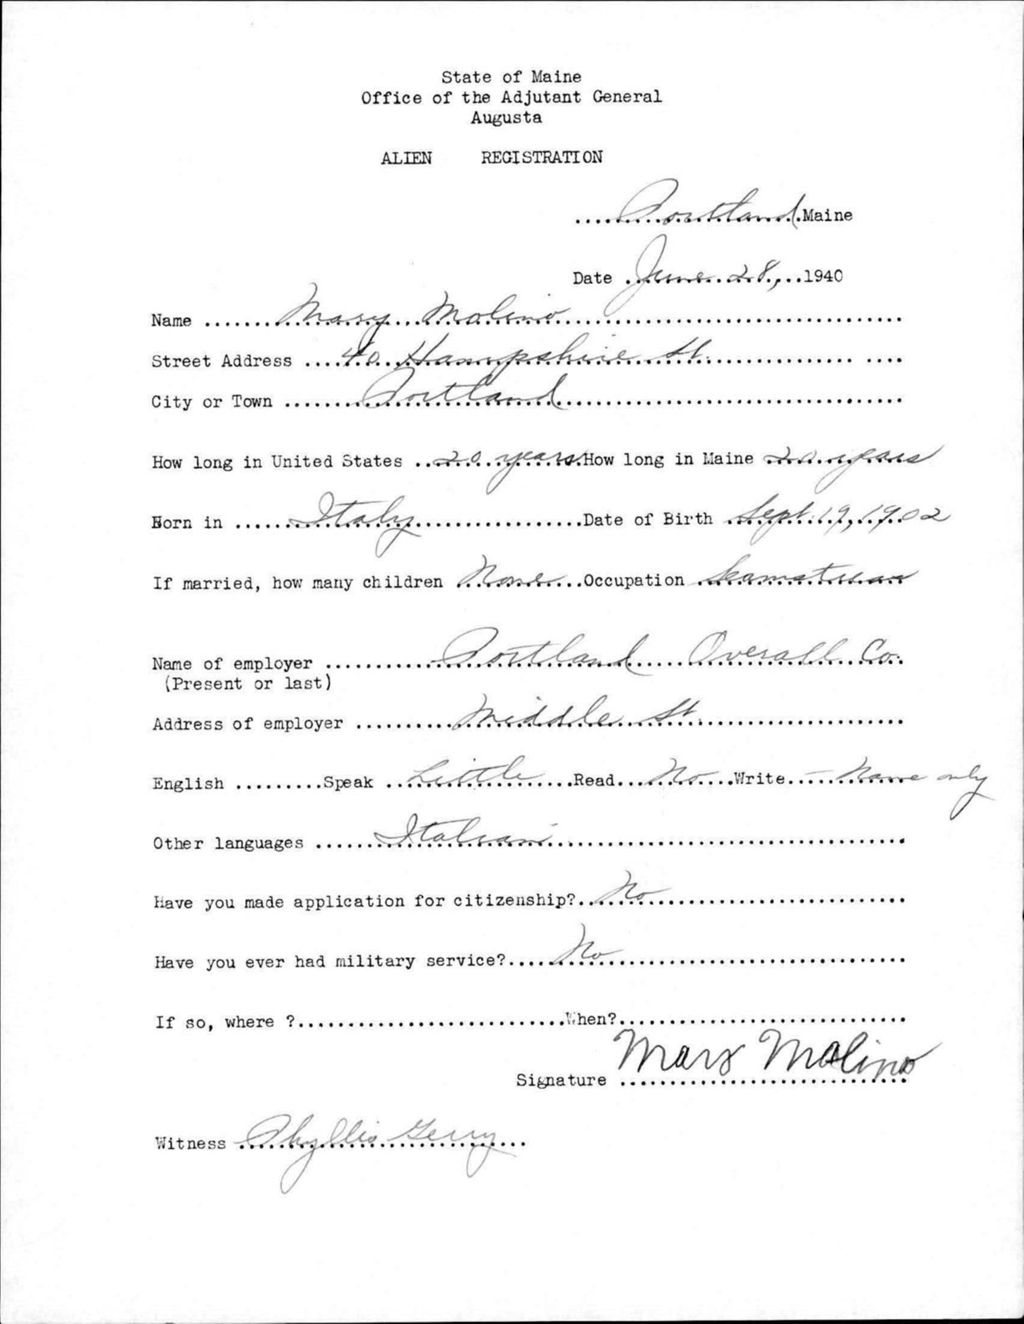 State of Maine
Office of the Adjutant General
Augusta
ALIEN REGISTRATION
Portland Maine
Date June 28, 1940
Name Mary Molino
Street Address 40 Hampshire St.
City or Town Portland
How long in United States 20 years How long in Maine 20 years
Born in Italy Date of Birth Sept. 19, 1902
If married, how many children None Occupation
Name of employer Portland Overall Co.
(Present or last)
Address of employer Middle St
English Speak Little Read No Write - Name only
Other languages Italian
Have you made application for citizenship? No
Have you ever had military service? No
If so, where ? When?
Signature Mary Molino
Witness Phyllis Gerry